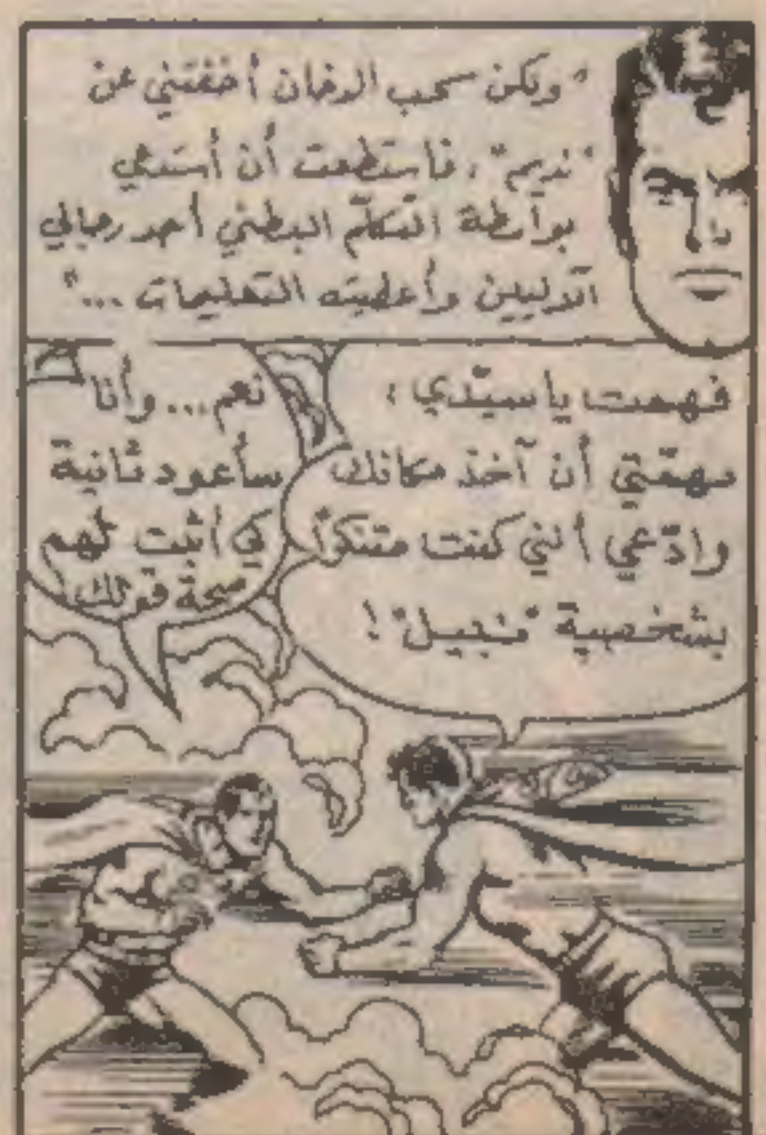 "ولكن سحب الدخان أخفتني عن
"نديم"، فاستطعت أن أستدعي
بواسطة التكلّم البطني أحد رجالي
الآليين وأعطيته التعليمات ..."
فهمت يا سيّدي ،
مهمّتي أن آخذ مكانك
وادّعي أنني كنت متنكراً
بشخصية "نبيل"!
نعم... وأنا
سأعود ثانية
كي أثبت لهم
صحة قولك!